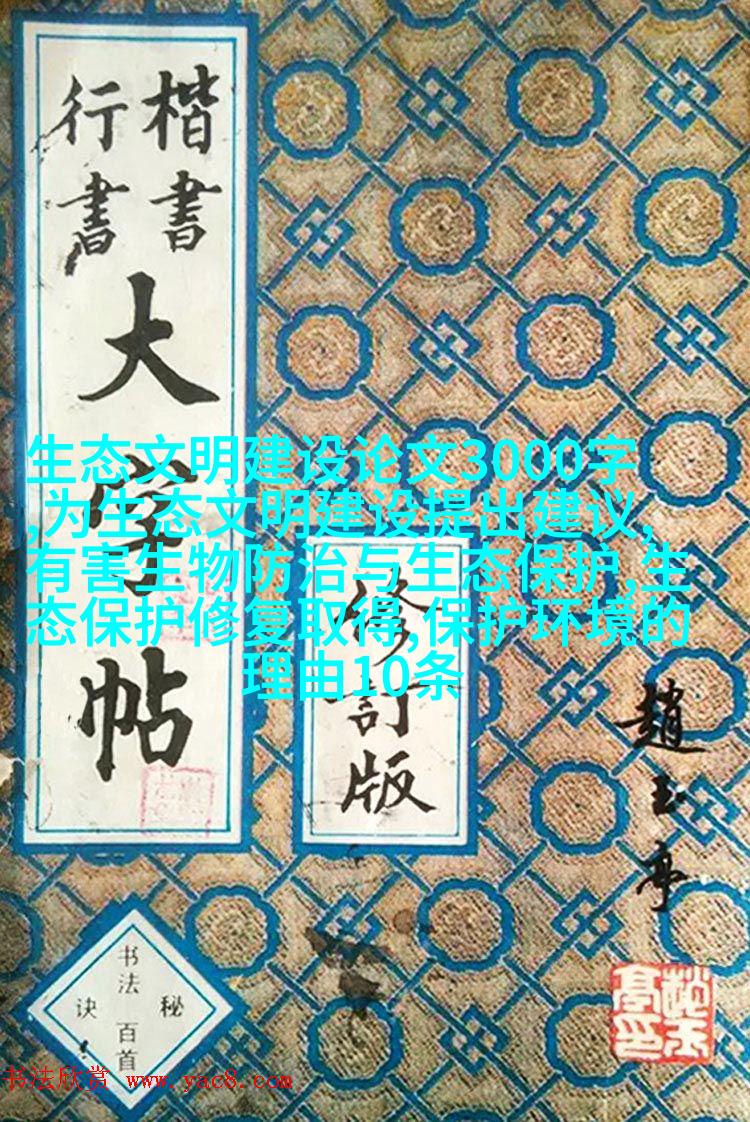 楷書
行書
大字帖
生态文明建设论文3000字
,为生态文明建设提出建议,
有害生物防治与生态保护,生
态保护修复取得,保护环境的
理由10条
修訂版
趙玉亭
书法百首
秘诀
书法欣赏 www.yac8.com